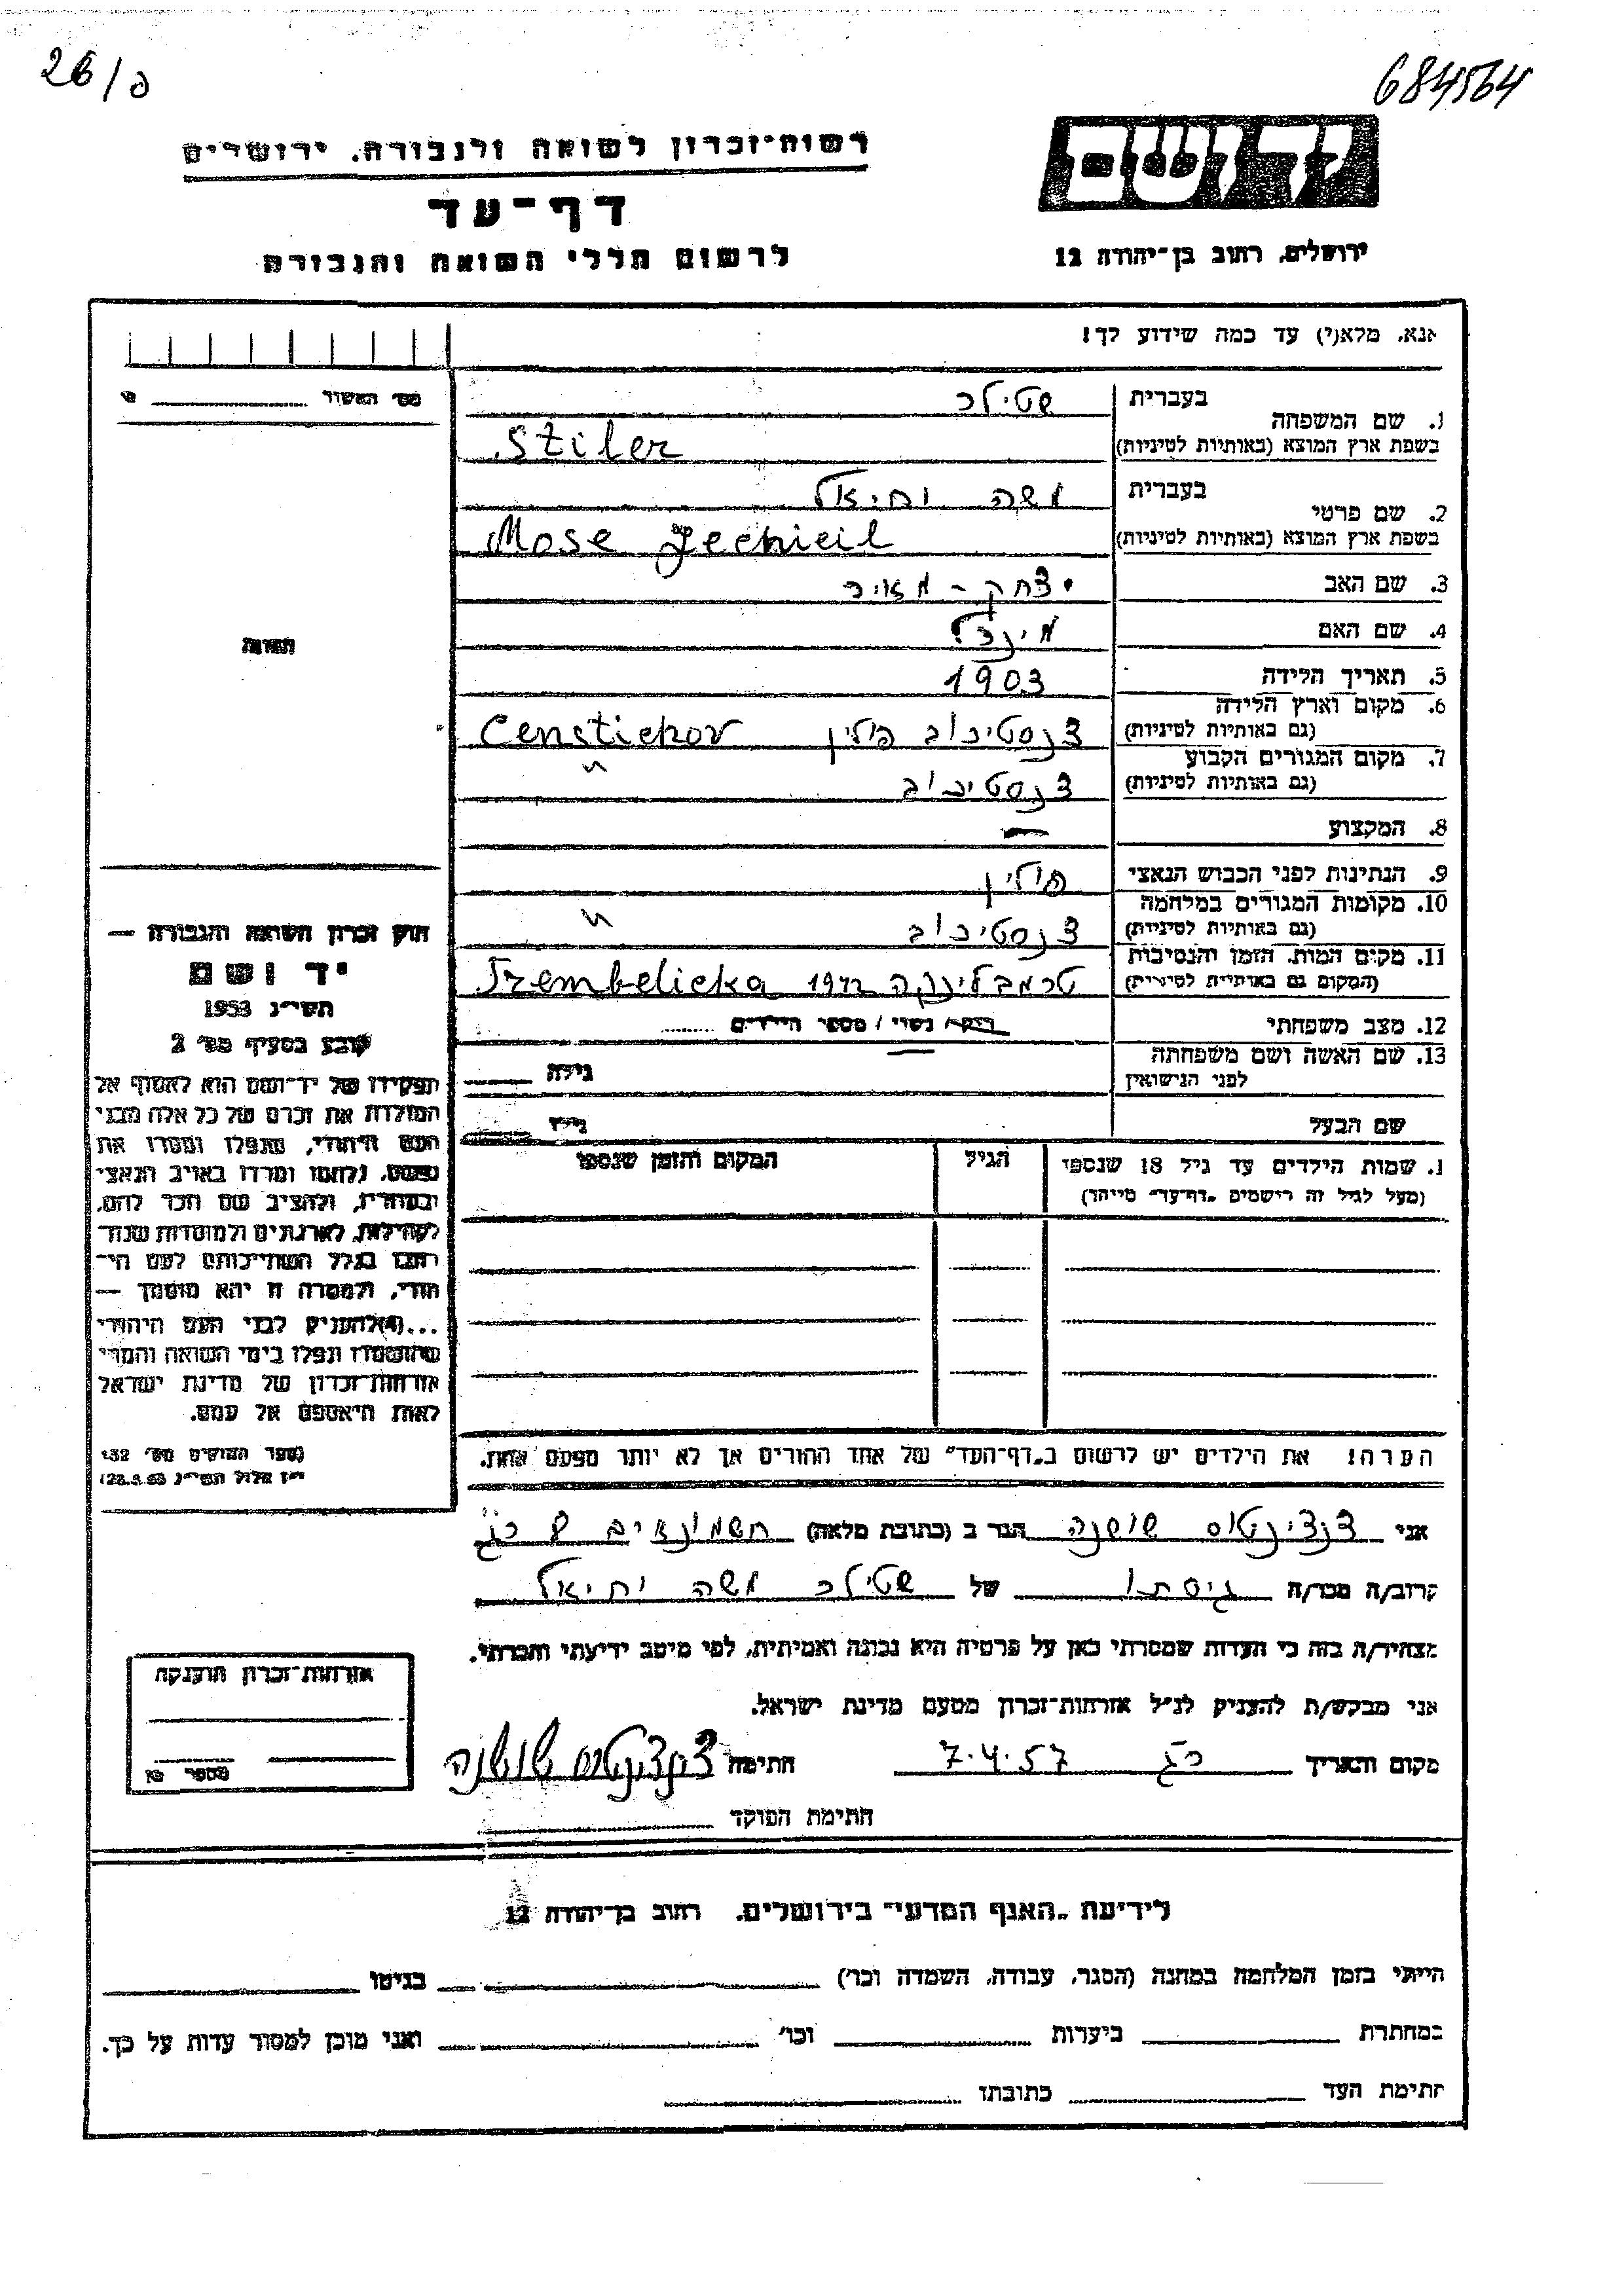 26/ם
684564
יד ושם
רשות-זכרון לשואה ולגבורה, ירושלים
דף-עד
לרשום חללי השואה והגבורה
ירושלים, רחוב בן-יהודה 12
אנא, מלא(י) עד כמה שידוע לך!
מס' האשור
1. שם המשפחה
בעברית שטילר
בשפת ארץ המוצא (באותיות לטיניות) Sziler
2. שם פרטי
בעברית משה יחיאל
בשפת ארץ המוצא (באותיות לטיניות) Mose Jechieil
3. שם האב יצחק - מאיר
4. שם האם
5. תאריך הלידה 1903
6. מקום וארץ הלידה
(גם באותיות לטיניות) צנסטיכוב פולין Censtichov
7. מקום המגורים הקבוע
(גם באותיות לטיניות) צנסטיכוב "
8. המקצוע —
9. הנתינות לפני הכבוש הנאצי פולין
10. מקומות המגורים במלחמה
(גם באותיות לטיניות) צנסטיכוב "
11. מקום המות, הזמן והנסיבות
(המקום גם באותיות לטיניות) טרמבלינקה 1942 Trembelicka
12. מצב משפחתי רוק / נשוי / מספר הילדים
13. שם האשה ושם משפחתה
לפני הנישואין גילה
שם הבעל גילו
1. שמות הילדים עד גיל 18 שנספו
(מעל לגיל זה רישמים "דף-עד" מייחד)
הגיל
המקום והזמן שנספו
הערה! את הילדים יש לרשום ב"דף-העד" של אחד ההורים אך לא יותר מפעם אחת.
תמונה
חוק זכרון השואה והגבורה —
יד ושם
תשי"ג 1953
קובע בסעיף מס' 2
תפקידו של יד-ושם הוא לאסוף אל
המולדת את זכרם של כל אלה מבני
העם היהודי, שנפלו ומסרו את
נפשם, נלחמו ומרדו באויב הנאצי
ובעוזריו, ולהציב שם וזכר להם,
לקהילות, לארגונים ולמוסדות שנח-
רבו בגלל השתייכותם לעם הי-
הודי, ולמטרה זו יהא מוסמך —
...(4) להעניק לבני העם היהודי
שהושמדו ונפלו בימי השואה והמרי
אזרחות-זכרון של מדינת ישראל
לאות היאספם אל עמם.
(ספר החוקים מס' 132
י"ז אלול תשי"ג 28.8.53)
אני צנצינטוס שושנה הגר ב (כתובת מלאה) חשמונאים 8 רג
קרוב/ה מכר/ה גיסתו של שטילר משה יחיאל
מצהיר/ה בזה כי העדות שמסרתי כאן על פרטיה היא נכונה ואמיתית, לפי מיטב ידיעתי והכרתי.
אני מבקש/ת להעניק לנ"ל אזרחות-זכרון מטעם מדינת ישראל.
מקום ותאריך רג 7.4.57 חתימה צנצינטוס שושנה
חתימת הפוקד
אזרחות-זכרון הוענקה
מספר
לידיעת "האגף המדעי" בירושלים, רחוב בן-יהודה 12
הייתי בזמן המלחמה במחנה (הסגר, עבודה, השמדה וכו') בגיטו
במחתרת ביערות וכו' ואני מוכן למסור עדות על כך.
חתימת העד כתובתו